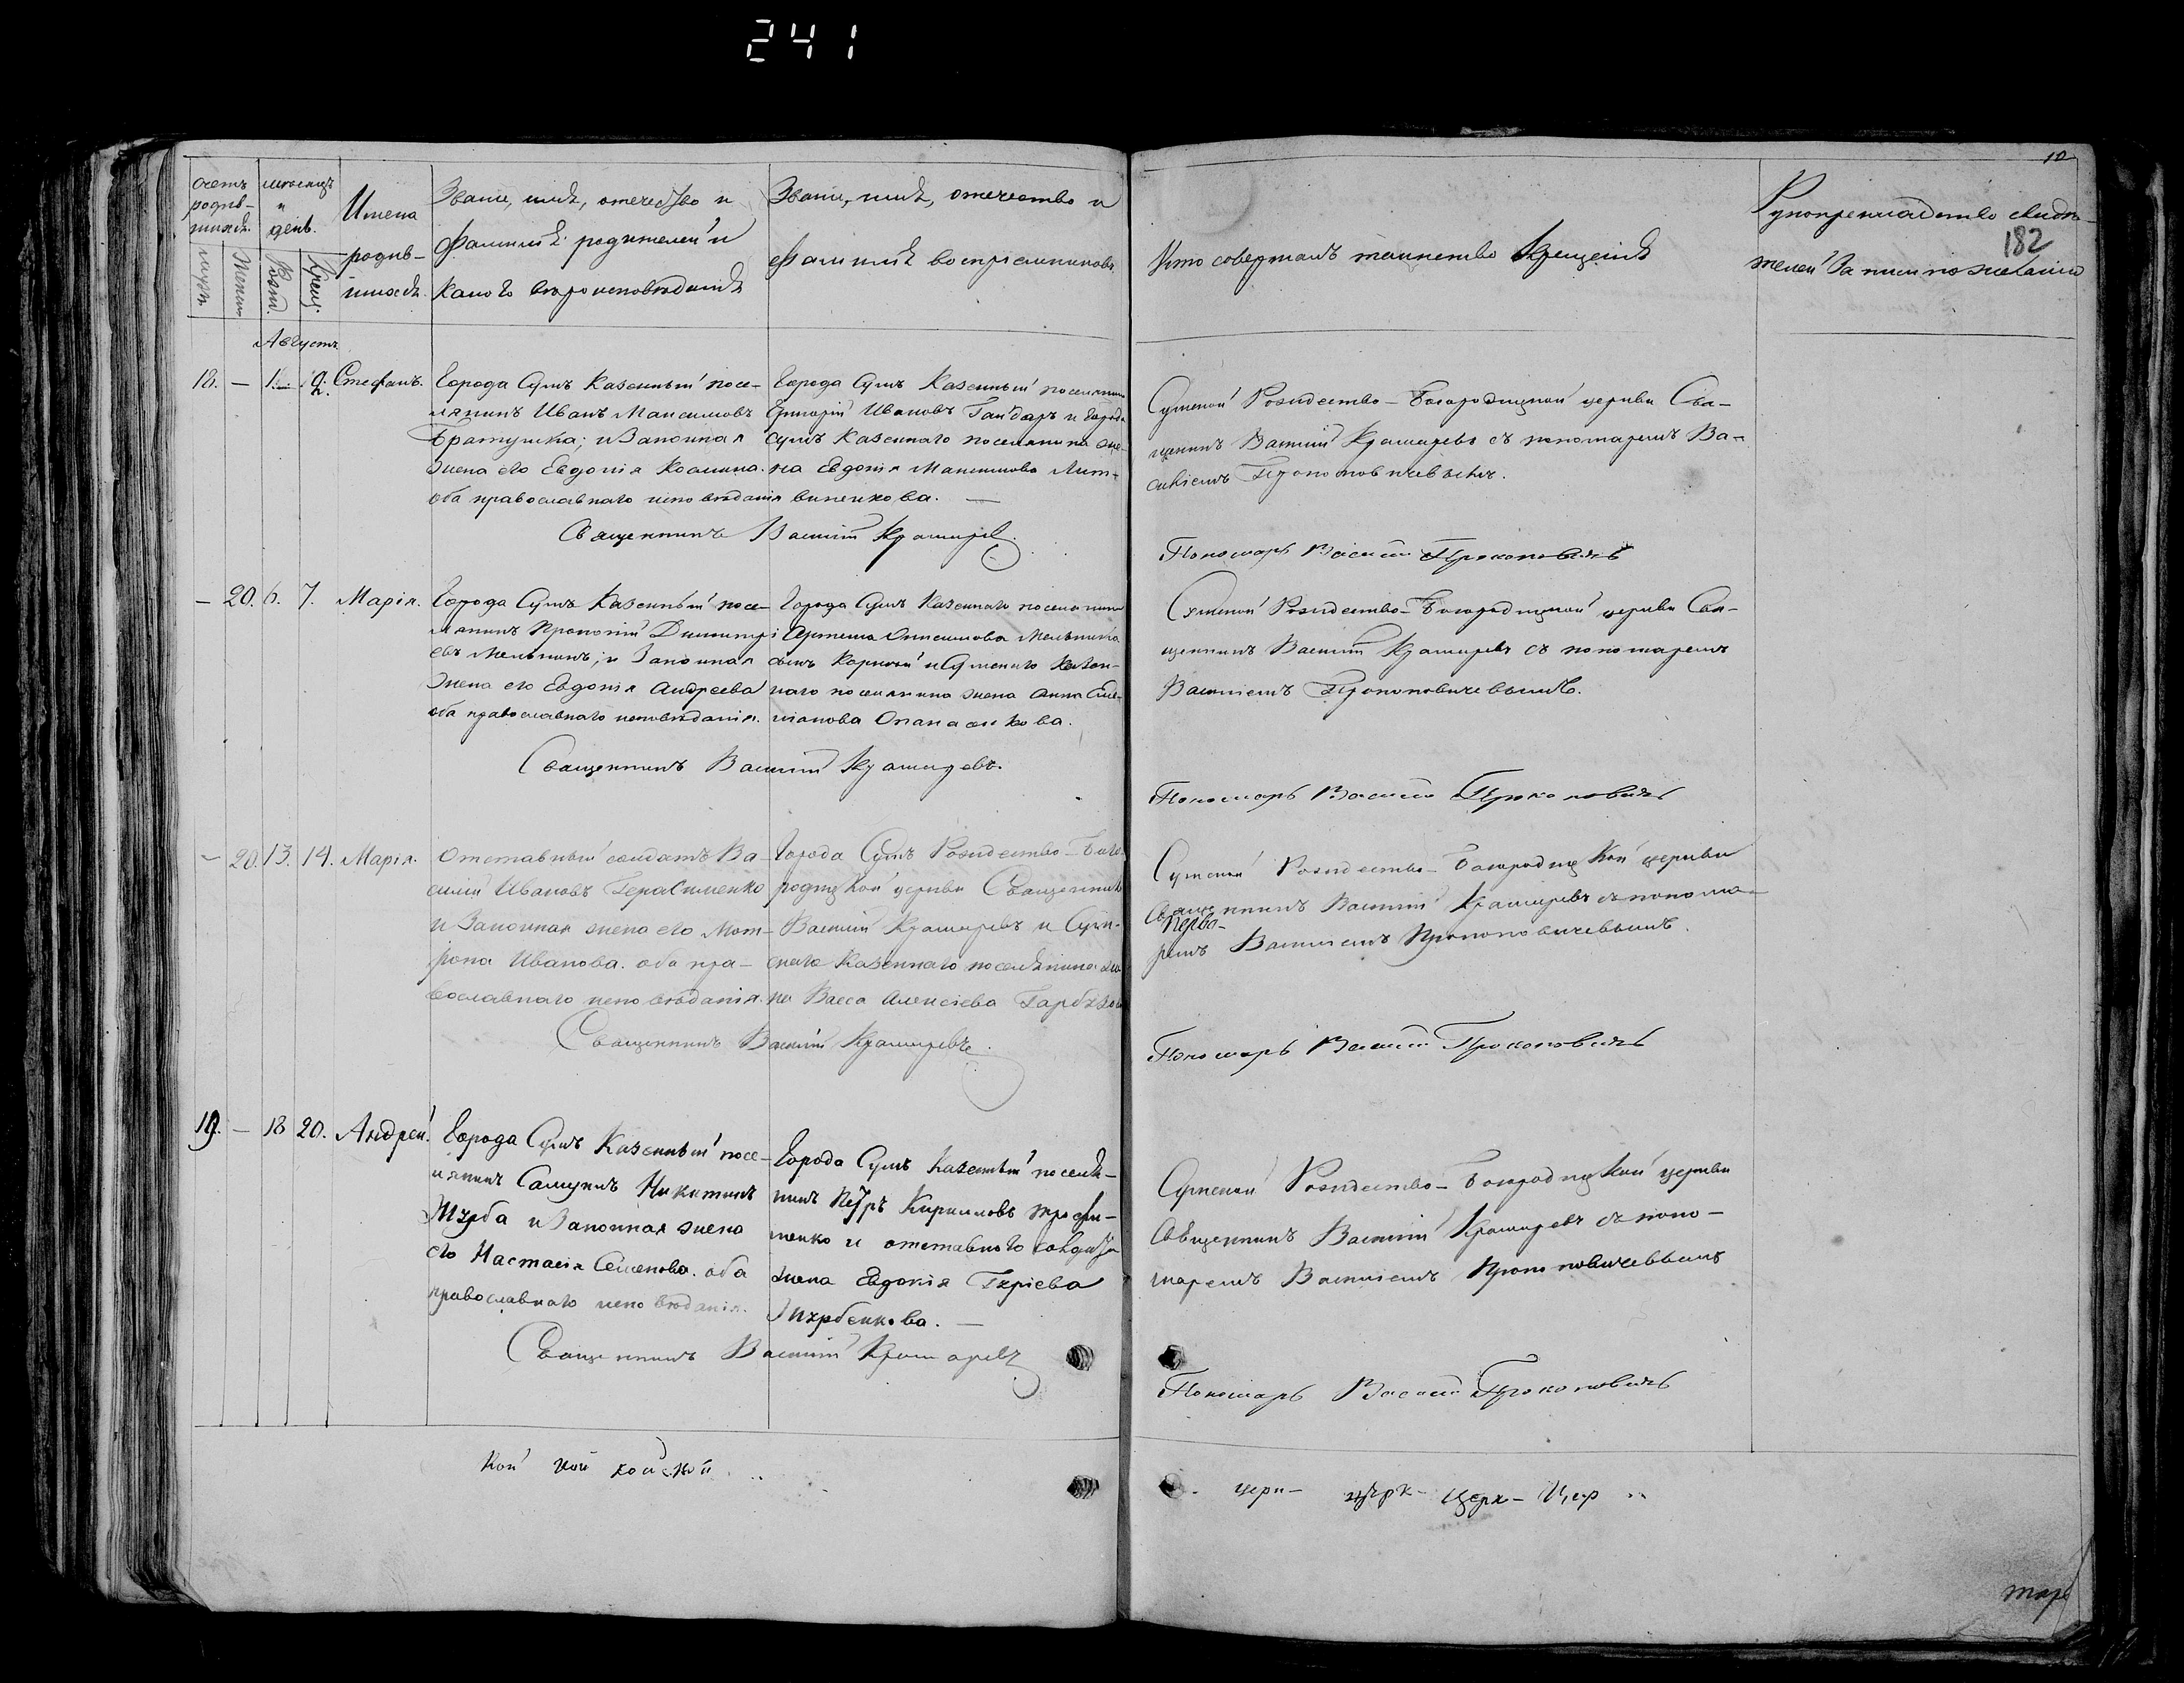 241
10
182
Счетъ
родив-
шихся.
мужеск
Женск
мѣсяцъ
и
день.
Рожд.
Крещ.
Имена
родив-
шихся.
Званіе, имя, отечество и
фамилія родителей и
какого вѣроисповѣданія
Званіе, имя, отечество и
фамилія воспріемниковъ
Кто совершалъ таинство Крещенія
Рукоприкладство свидѣ-
телей записи по желанію
Августъ
18. — 1. 2. Стефанъ.
Города Сумъ Казенный посе-
лянинъ Иванъ Максимовъ
Братушка; и Законная
жена его Евдокія Козмина.
оба православнаго исповѣданія
Города Сумъ Казенный поселянинъ
Григорій Ивановъ Гайдарь и города
Сумъ Казеннаго поселянина же-
на Евдокія Максимова Лит-
виненкова. —
Священникъ Василій Крамаревъ
Сумской Рождество-Богородицкой церкви Свя-
щенникъ Василій Крамаревъ съ пономаремъ Ва-
силіемъ Прокоповичевымъ.
Пономарь Василій Прокоповичъ
— 20. 6. 7. Марія.
Города Сумъ Казенный посе-
лянинъ Прокопій Димитрі
евъ Мельникъ; и Законная
жена его Евдокія Андреева
оба православнаго исповѣданія.
Города Сумъ Казеннаго поселянина
Артема Онисимова Мельника
сынъ Корнилій и Сумскаго Казен-
наго поселянина жена Анна Еме-
ліанова Опанасенкова.
Священникъ Василій Крамаревъ.
Сумской Рождество-Богородицкой церкви Свя-
щенникъ Василій Крамаревъ съ пономаремъ
Василіемъ Прокоповичевымъ.
Пономарь Василій Прокоповичъ
— 20. 13. 14. Марія.
Отставный солдатъ Ва-
силій Ивановъ Герасименко
и Законная жена его Мат-
рона Иванова. оба пра-
вославнаго исповѣданія.
Города Сумъ Рождество-Бого-
родицкой церкви Священникъ
Василій Крамаревъ и Сум-
скаго Казеннаго поселянина же
на Васса Алексіева
Священникъ Василій Крамаревъ.
Сумской Рождество-Богородицкой церкви
Священникъ Василій Крамаревъ съ понома-
ремъ Василіемъ Прокоповичевымъ.
Пономарь Василій Прокоповичъ
19. — 18 20. Андрей.
Города Сумъ Казенный посе-
лянинъ Самуилъ Никитинъ
и Законная жена
его Настасія Семенова. оба
православнаго исповѣданія.
Города Сумъ Казенный поселя-
нинъ Петръ Кириловъ Трофи-
менко и отставнаго солдата
жена Евдокія Гуріева
Священникъ Василій Крамаревъ
Сумской Рождество-Богородицкой церкви
Священникъ Василій Крамаревъ съ поно-
маремъ Василіемъ Прокоповичевымъ
Пономарь Василій Прокоповичъ
кой кой кой ской
церк- церк- церк- Цер
мар